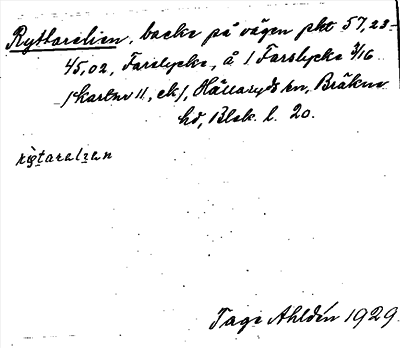 Ryttarelien, backe på vägen pkt 57,23-
45,02, Farslycke, å 1 Farslycke 3/16
(kartnr 11, ek), Hällaryds sn, Bräkne
hd, Blek. l. 20.
rytarelien
Tage Ahldén 1929.